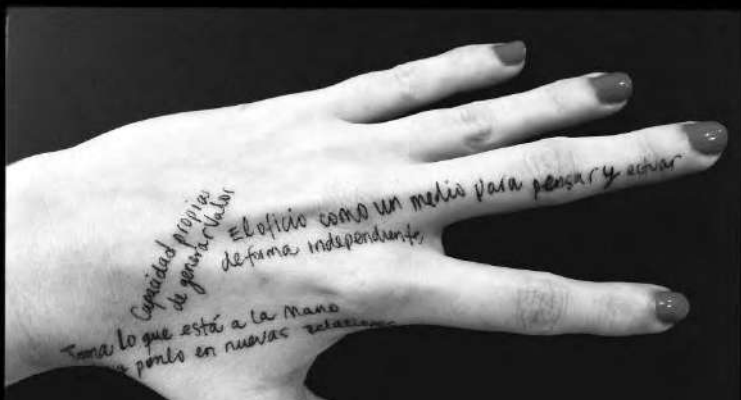 Capacidad propia
de generar valor
El oficio como un medio para pensar y actuar
de forma independiente,
Toma lo que está a la mano
ponlo en nuevas relaciones